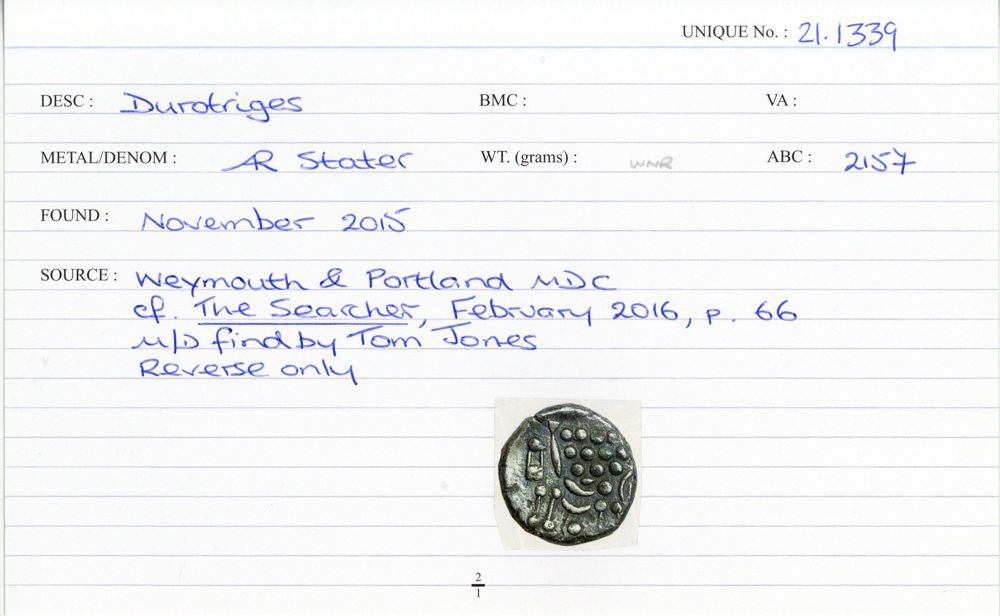 UNIQUE No. : 21.1339
DESC : Durotriges BMC : VA :
METAL/DENOM : AR Stater WT. (grams) : WNR ABC : 2157
FOUND : November 2015
SOURCE : Weymouth & Portland MDC
cf. The Searcher, February 2016, p. 66
M/D find by Tom Jones
Reverse only
2
1